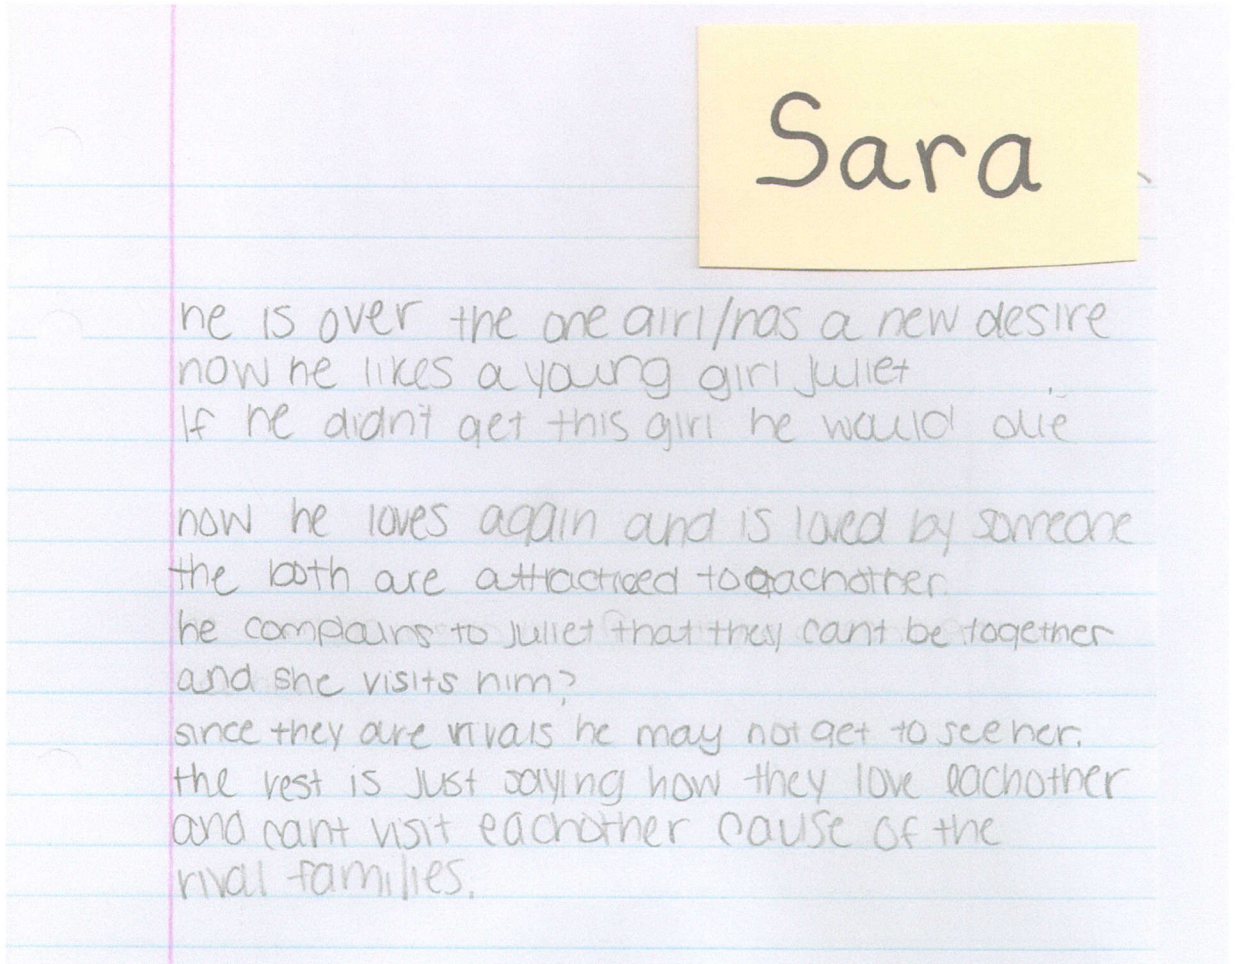 Sara
he is over the one girl/has a new desire
now he likes a young girl Juliet
If he didn't get this girl he would die
now he loves again and is loved by someone
the both are attracticed to eachother
he complains to Juliet that they cant be together
and she visits him?
since they are rivals he may not get to see her.
the rest is just saying how they love eachother
and cant visit eachother cause of the
rival families.